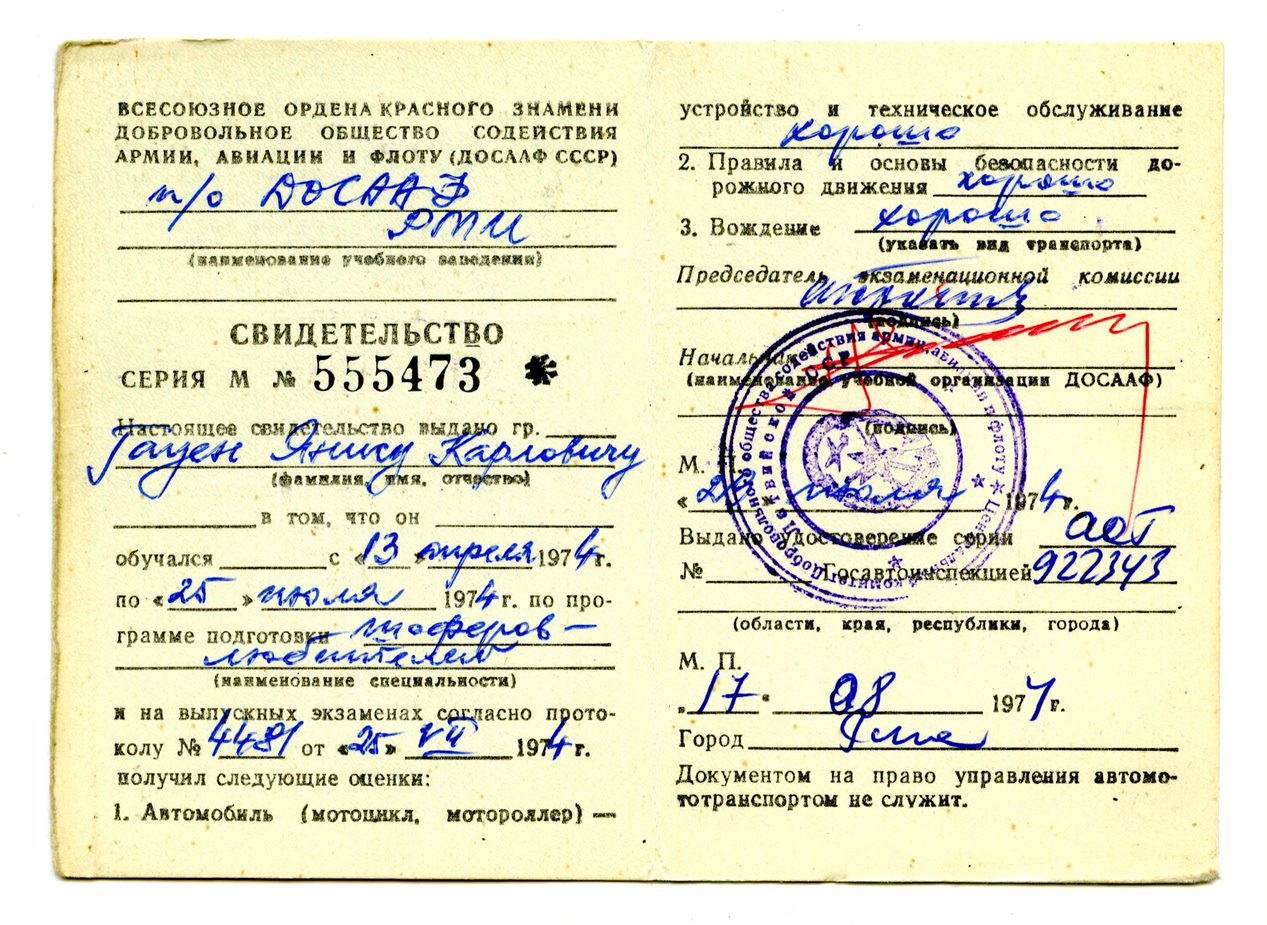 ВСЕСОЮЗНОЕ ОРДЕНА КРАСНОГО ЗНАМЕНИ
ДОБРОВОЛЬНОЕ ОБЩЕСТВО СОДЕЙСТВИЯ
АРМИИ, АВИАЦИИ И ФЛОТУ (ДОСААФ СССР)
п/о ДОСААФ
РМИ
(наименование учебного заведения)
СВИДЕТЕЛЬСТВО
СЕРИЯ М № 555473
Настоящее свидетельство выдано гр.
Гауен Янису Карловичу
(фамилия, имя, отчество)
в том, что он
обучался с «13» апреля 1974 г.
по «25» июля 1974 г. по про-
грамме подготовки шоферов-
любителей
(наименование специальности)
и на выпускных экзаменах согласно прото-
колу № 4481 от «25» VII 1974 г.
получил следующие оценки:
1. Автомобиль (мотоцикл, мотороллер) —
устройство и техническое обслуживание
хорошо
2. Правила и основы безопасности до-
рожного движения хорошо
3. Вождение хорошо
(указать вид транспорта)
Председатель экзаменационной комиссии
(подпись)
Начальник
(наименование учебной организации ДОСААФ)
(подпись)
М. П.
июля 1974 г.
Выдано удостоверение серии АОТ
№ Госавтоинспекцией 922343
(области, края, республики, города)
М. П.
„17“ 08 1974 г.
Город
Документом на право управления автомо-
тотранспортом не служит.